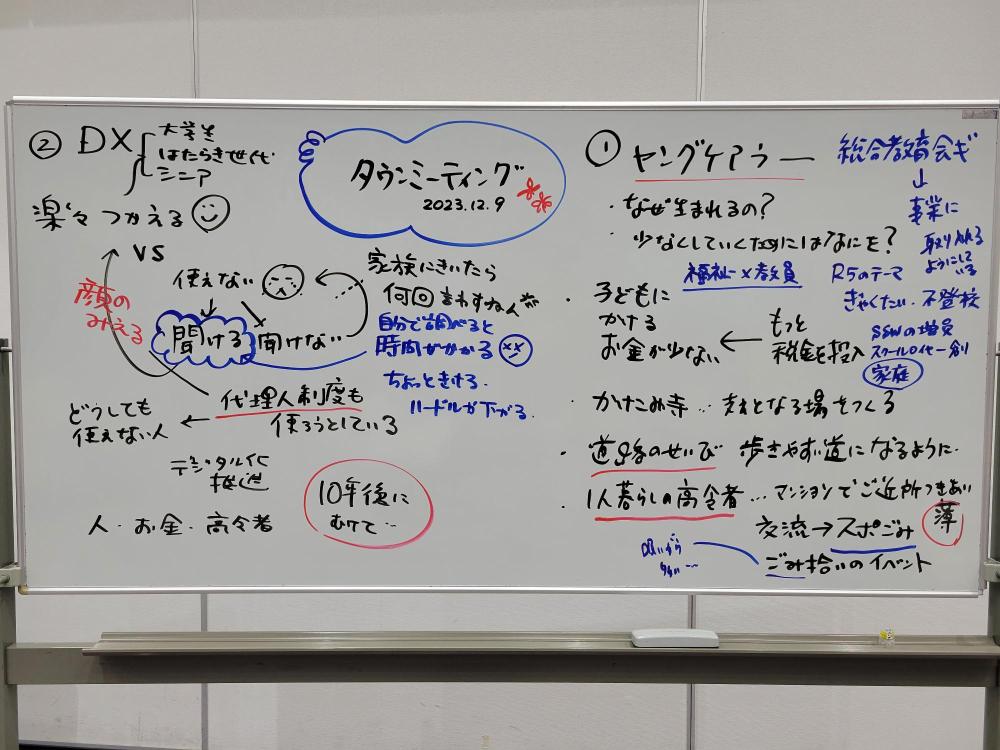 タウンミーティング
2023.12.9
① ヤングケアラー
総合教育会ギ
↓
事業に
取り入れる
ようにして
いる
・なぜ生まれるの?
・少なくしていくためにはなにを?
福祉×教員
R5のテーマ
ぎゃくたい・不登校
SSWの増員
スクールロイヤー創
家庭
・子どもに
かける
お金が少ない
← もっと
税金を投入
・かたつみ寺…支えとなる場をつくる
・道路のせいび 歩きやすい道になるように・
・1人暮らしの高令者…マンションでご近所つきあい
薄
交流→スポごみ
ごみ拾いのイベント
吸いがら
多い…
② DX
大学生
はたらき世代
シニア
楽々つかえる
VS
顔の
みえる
使えない
聞ける
聞けない
家族にきいたら
何回言わすねん
自分で調べると
時間がかかる
ちょっときける・
ハードルが下がる・
代理人制度も
使ろうとしている
← どうしても
使えない人
デジタル化
推進
人・お金・高令者
10年後に
むけて…